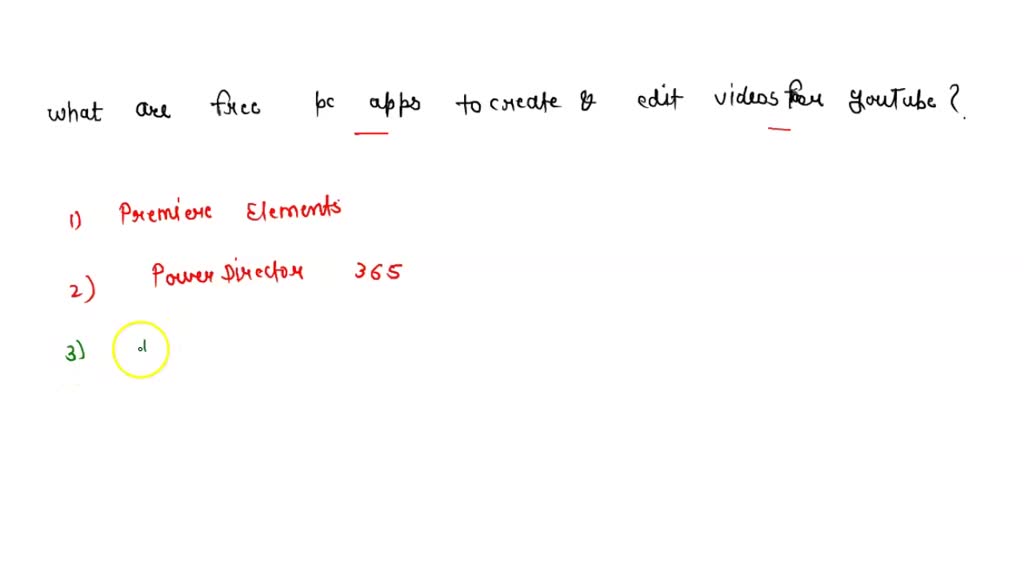 what are free pc apps to create & edit videos for YouTube?
1) Premiere Elements
2) PowerDirector 365
3) d